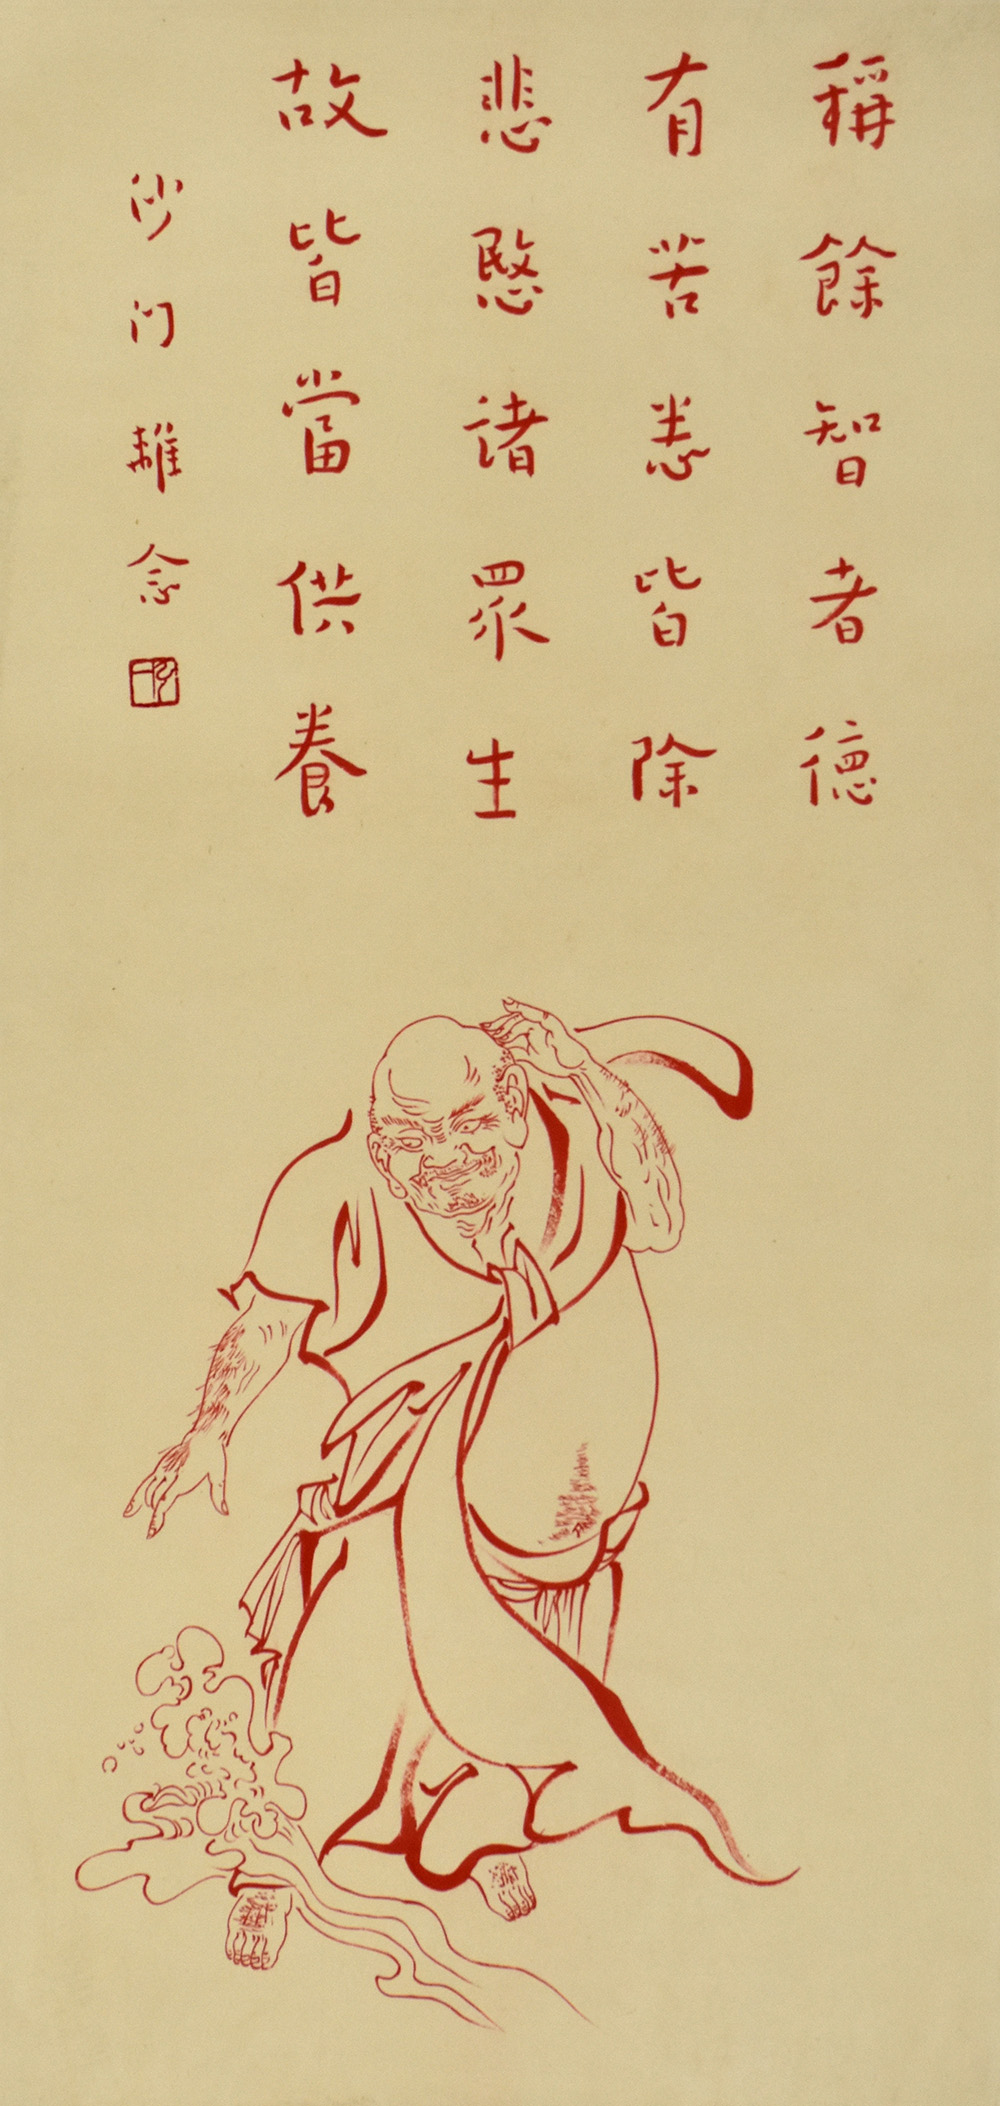 稱餘智者德
有苦悉皆除
悲愍诸眾生
故皆當供養
沙门念